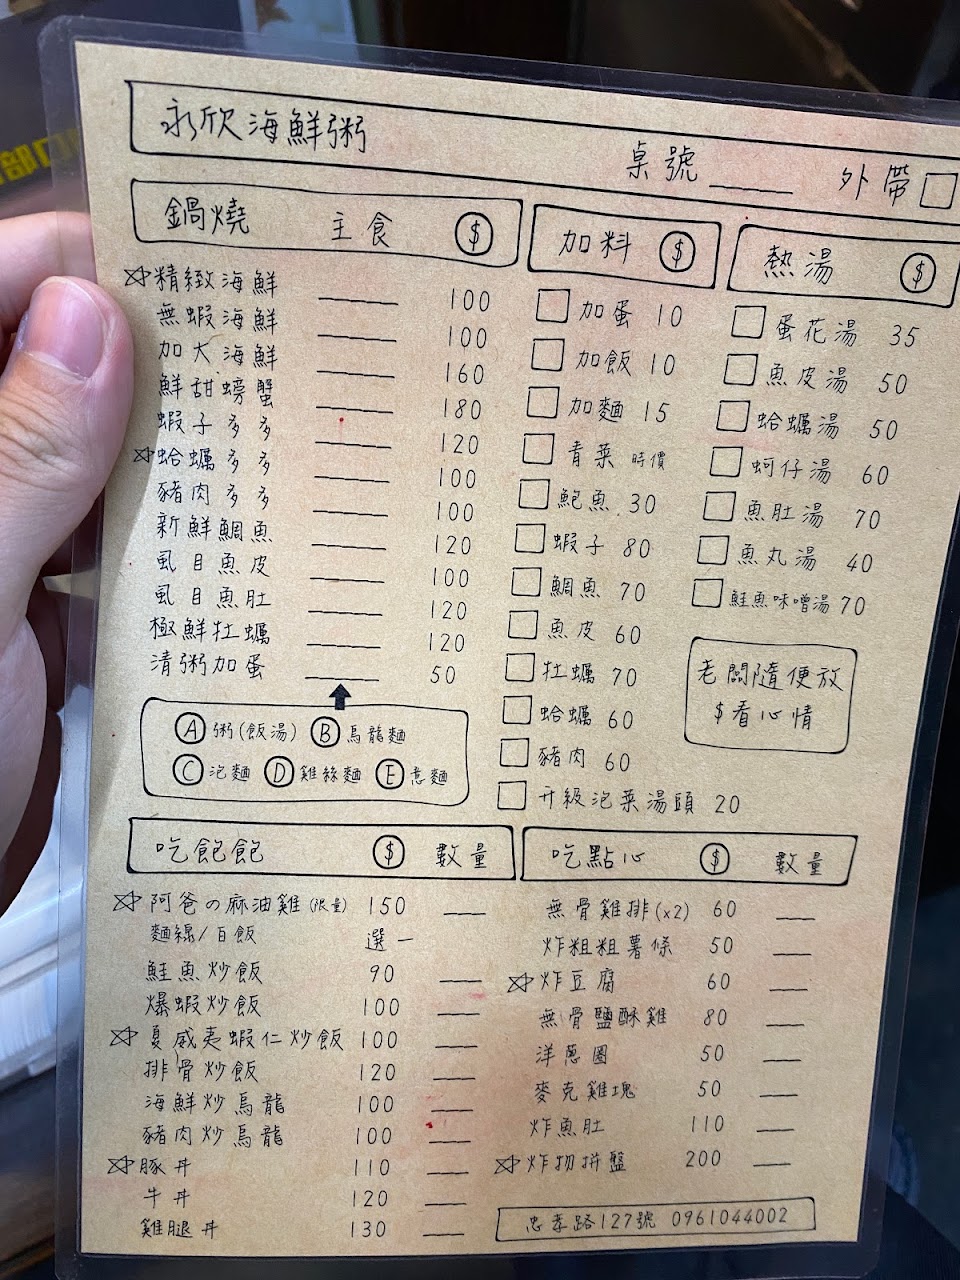 永欣海鮮粥
桌號 外帶
鍋燒 主食 $
精緻海鮮 100
無蝦海鮮 100
加大海鮮 160
鮮甜螃蟹 180
蝦子多多 120
蛤蠣多多 100
豬肉多多 100
新鮮鯛魚 120
虱目魚皮 100
虱目魚肚 120
極鮮牡蠣 120
清粥加蛋 50
A 粥(飯湯) B 烏龍麵
C 泡麵 D 雞絲麵 E 意麵
加料 $
加蛋 10
加飯 10
加麵 15
青菜 時價
鮑魚 30
蝦子 80
鯛魚 70
魚皮 60
牡蠣 70
蛤蠣 60
豬肉 60
升級泡菜湯頭 20
熱湯 $
蛋花湯 35
魚皮湯 50
蛤蠣湯 50
蚵仔湯 60
魚肚湯 70
魚丸湯 40
鮭魚味噌湯 70
老闆隨便放
$看心情
吃飽飽 $ 數量
阿爸の麻油雞(限量) 150
麵線/白飯 選一
鮭魚炒飯 90
爆蝦炒飯 100
夏威夷蝦仁炒飯 100
排骨炒飯 120
海鮮炒烏龍 100
豬肉炒烏龍 100
豚丼 110
牛丼 120
雞腿丼 130
吃點心 $ 數量
無骨雞排(x2) 60
炸粗粗薯條 50
炸豆腐 60
無骨鹽酥雞 80
洋蔥圈 50
麥克雞塊 50
炸魚肚 110
炸物拼盤 200
忠孝路127號 0961044002